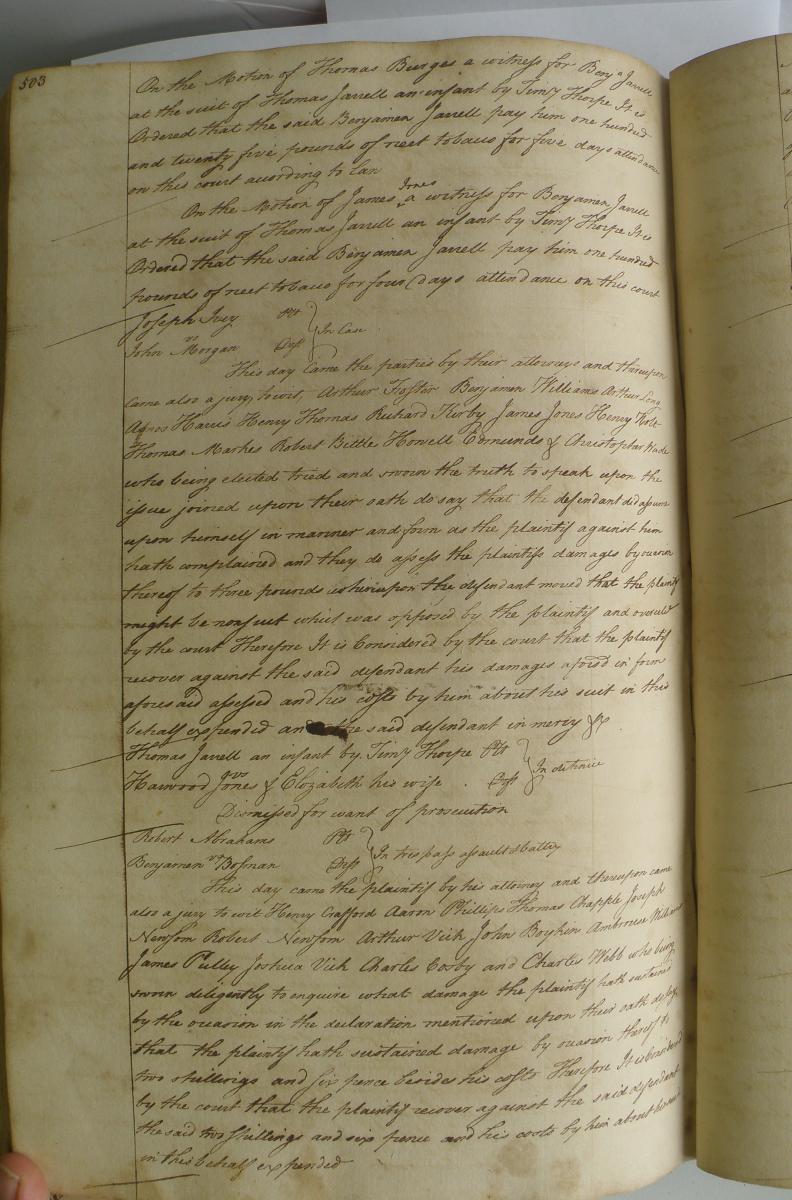 503
On the Motion of Thomas Burges a witness for Benj.a Jarrell
at the suit of Thomas Jarrell an infant by Timy Thorpe It is
Ordered that the said Benjamen Jarrell pay him one hundred
and twenty five pounds of neet tobacco for five days attendance
on this court according to law
On the Motion of James Jones a witness for Benjamen Jarrell
at the suit of Thomas Jarrell an infant by Timy Thorpe It is
Ordered that the said Benjamen Jarrell pay him one hundred
pounds of neet tobacco for four days attendance on this court
Joseph Ivey Plt
vs } In Case
John Morgan Deft
This day came the parties by their attorneys and thereupon
came also a jury, to wit, Arthur Foster Benjamen Williams Arthur Long
Agnos Harris Henry Thomas Richard Kirby James Jones Henry Holt
Thomas Markes Robert Bittle Howell Edmunds & Christophar Wade
who being elected tried and sworn the truth to speak upon the
issue joined upon their oath do say that the defendant did assume
upon himself in manner and form as the plaintif against him
hath complained and they do assess the plaintifs damages by ocasion
thereof to three pounds whereupon the defendant moved that the plaintif
might be nonsuit which was opposed by the plaintif and overuled
by the court Therefore It is Considered by the court that the plaintif
recover against the said defendant his damages afores'd in form
aforesaid assessed and his costs by him about his suit in this
behalf expended and the said defendant in mercy &c
Thomas Jarrell an infant by Timy Thorpe Plt
vs } In detinue
Harwood Jones & Elizabeth his wife . Deft
Dismissed for want of prosecution
Robert Abrahams Plt
vs } In trespass assault & battery
Benjamen Bosman Deft
This day came the plaintif by his attorney and thereupon came
also a jury to wit Henry Crafford Aaron Phillips Thomas Chapple Joseph
Newsom Robert Newsom Arthur Vick John Boykin Ambrouse Williams
James Pulley Joshua Vick Charles Cosby and Charles Webb who being
sworn diligently to enquire what damage the plaintif hath sustained
by the ocasion in the declaration mentioned upon their oath do say
that the plaintif hath sustained damage by ocasion thereof to
two shillings and six pence besides his costs Therefore It is Considered
by the court that the plaintif recover against the said defendant
the said two shillings and six pence and his costs by him about his suit
in this behalf expended